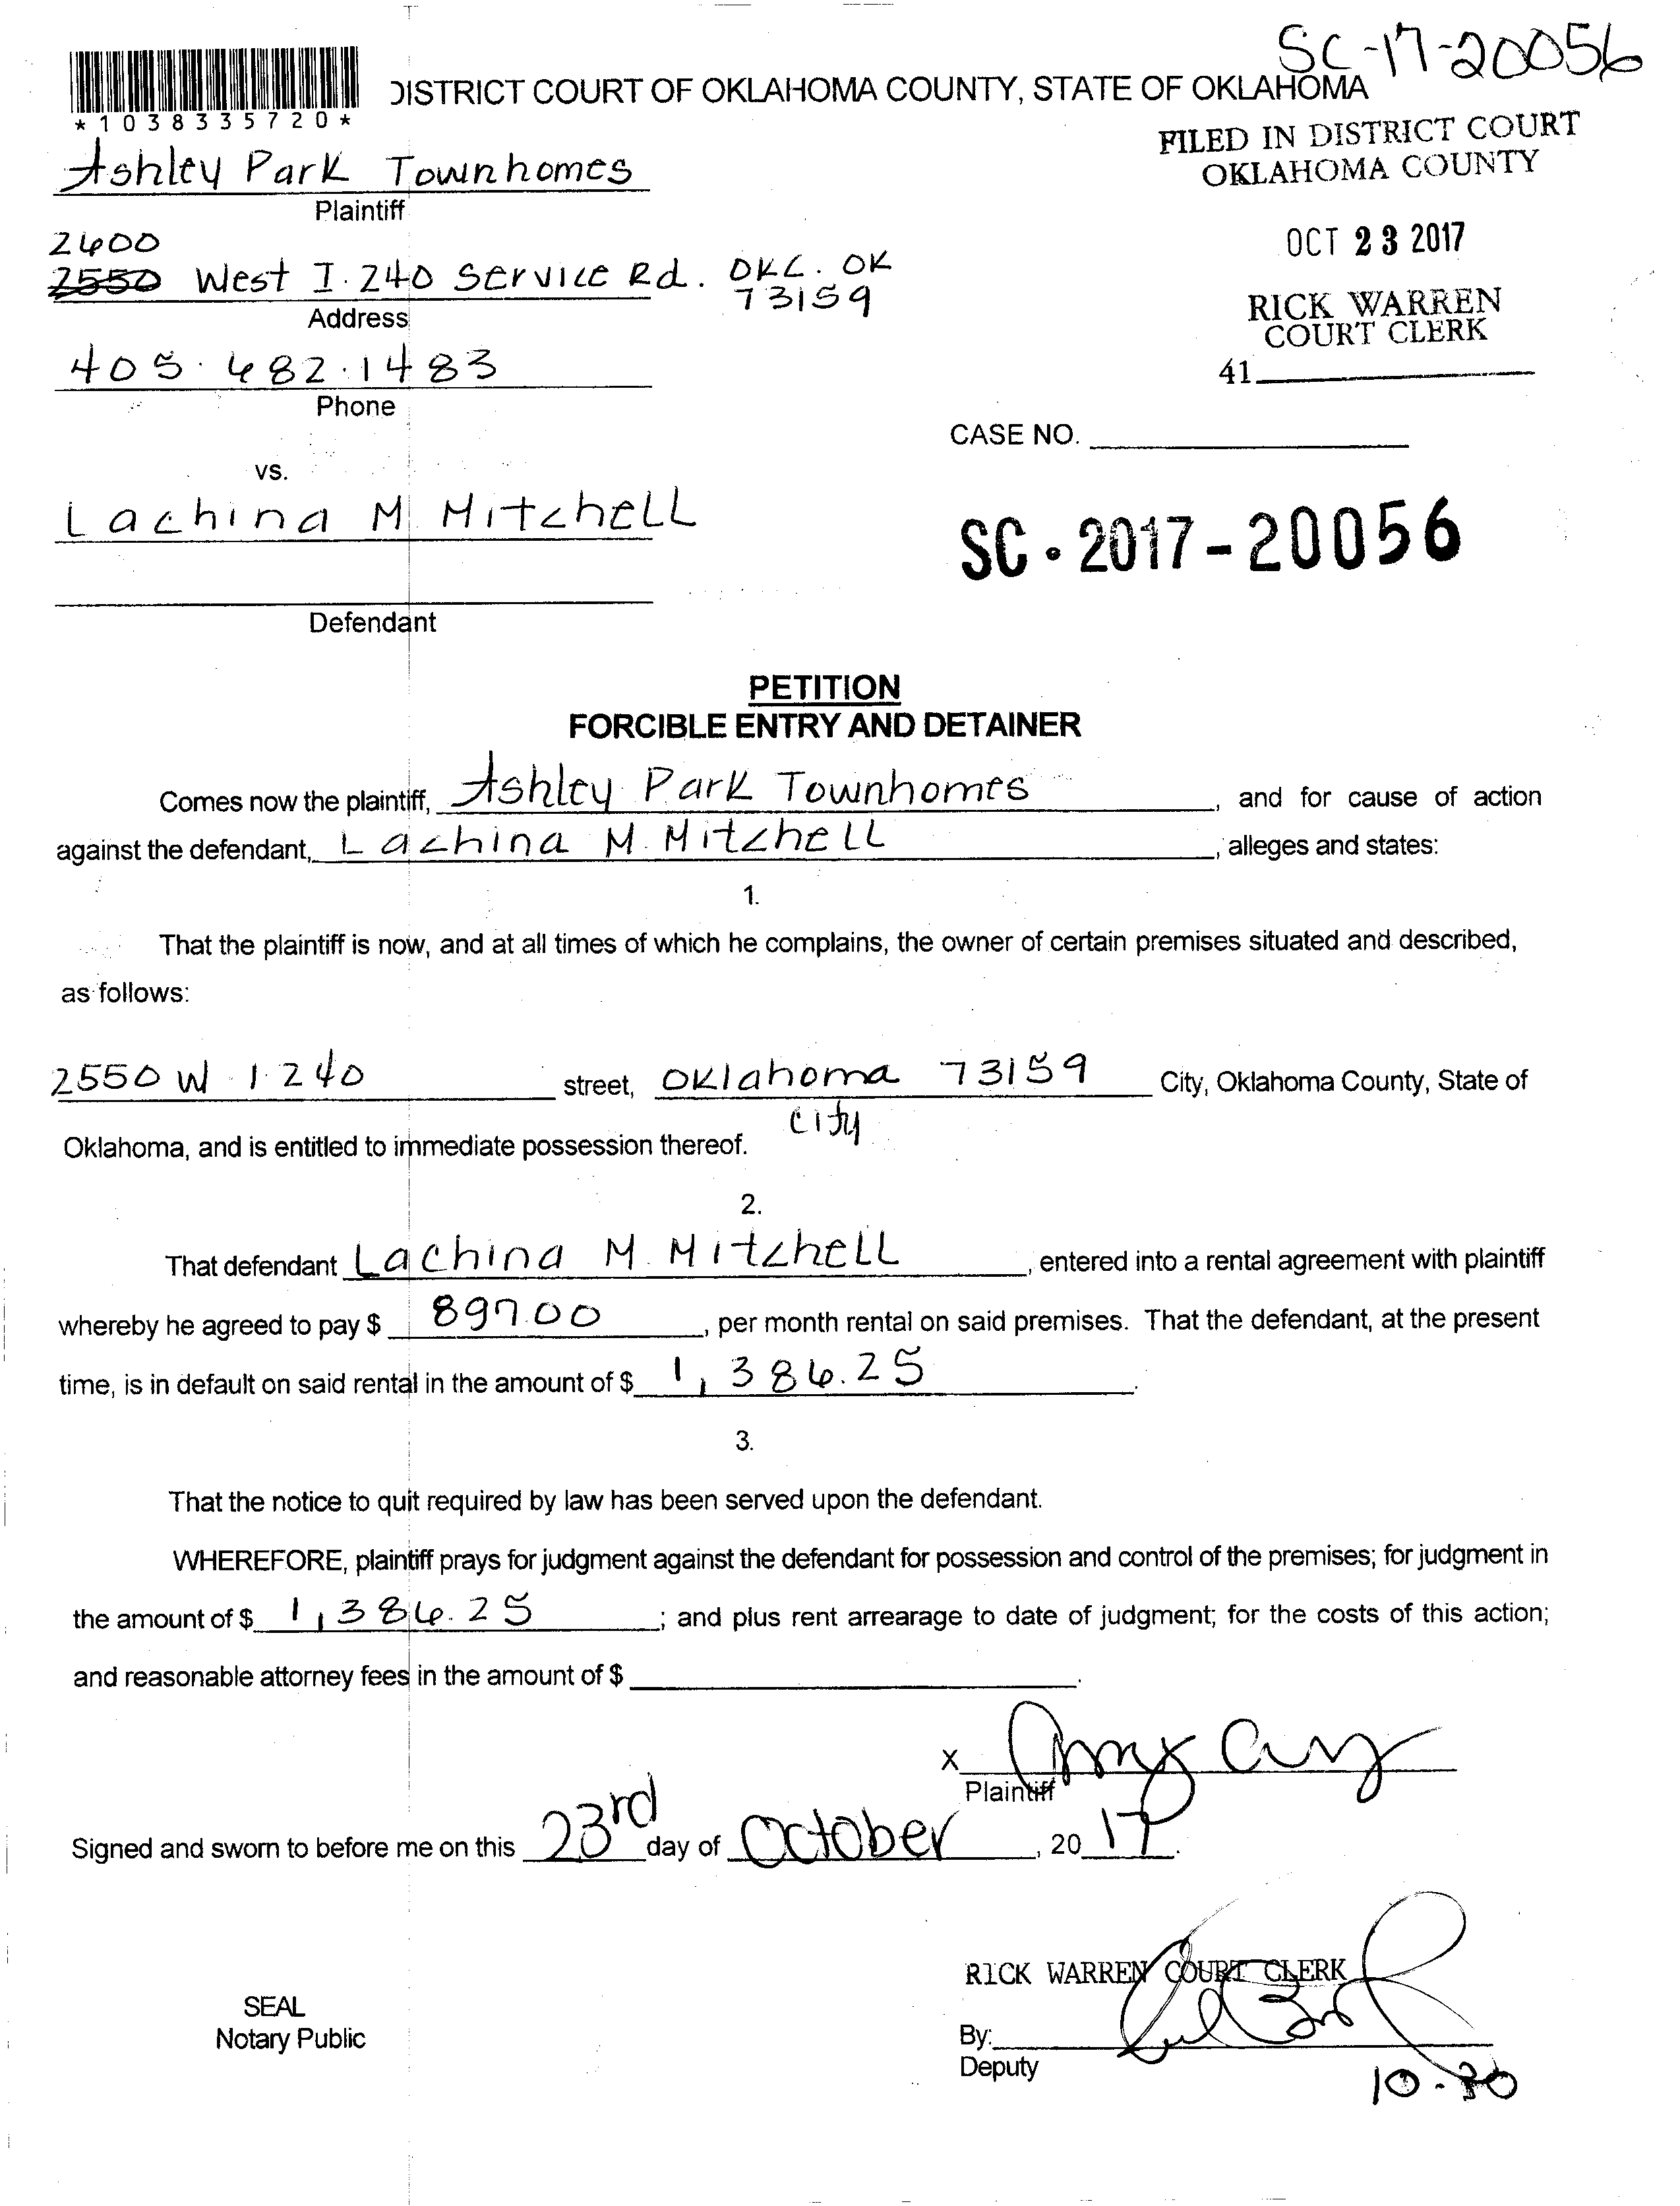 SC-17-20056
DISTRICT COURT OF OKLAHOMA COUNTY, STATE OF OKLAHOMA
*1038335720*
FILED IN DISTRICT COURT
OKLAHOMA COUNTY
Ashley Park Townhomes
Plaintiff
OCT 23 2017
2600
2550 West I.240 Service Rd. OKC. OK
73159
Address
RICK WARREN
COURT CLERK
405.682.1483
41
Phone
CASE NO.
vs.
Lachina M Mitchell
SC-2017-20056
Defendant
PETITION
FORCIBLE ENTRY AND DETAINER
Comes now the plaintiff, Ashley Park Townhomes, and for cause of action
against the defendant, Lachina M. Mitchell, alleges and states:
1.
That the plaintiff is now, and at all times of which he complains, the owner of certain premises situated and described,
as follows:
2550 W I 240 street, Oklahoma 73159 City, Oklahoma County, State of
City
Oklahoma, and is entitled to immediate possession thereof.
2.
That defendant Lachina M. Mitchell, entered into a rental agreement with plaintiff
whereby he agreed to pay $ 897.00, per month rental on said premises. That the defendant, at the present
time, is in default on said rental in the amount of $ 1,386.25.
3.
That the notice to quit required by law has been served upon the defendant.
WHEREFORE, plaintiff prays for judgment against the defendant for possession and control of the premises; for judgment in
the amount of $ 1,386.25; and plus rent arrearage to date of judgment; for the costs of this action;
and reasonable attorney fees in the amount of $.
X
Plaintiff
Signed and sworn to before me on this 23rd day of October, 2017.
RICK WARREN COURT CLERK
SEAL
Notary Public
By:
Deputy
10-30